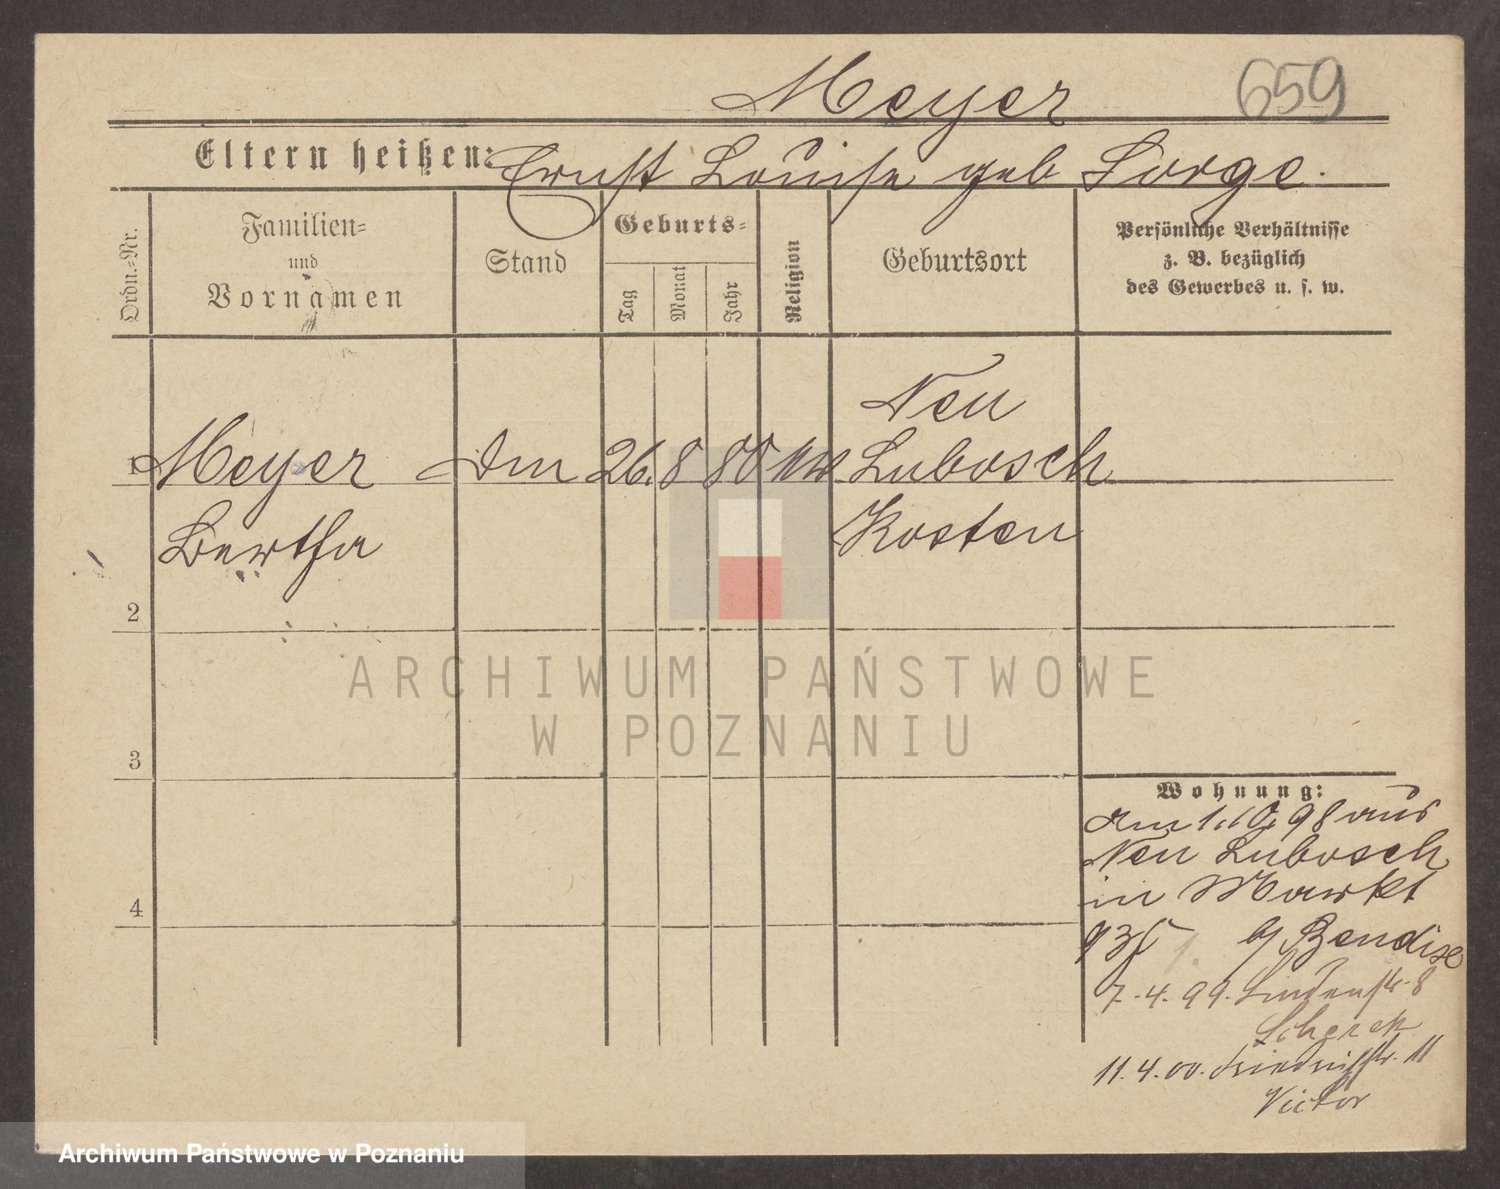 Meyer 659
Eltern heißen: Ernst Louise geb Sorge.
Ordn.-Nr.
Familien-
und
Vornamen
Stand
Geburts-
Tag
Monat
Jahr
Religion
Geburtsort
Persönliche Verhältnisse
z. B. bezüglich
des Gewerbes u. s. w.
Neu
1 Meyer Dm 26. 8 80 Lubosch
Bertha Kosten
2
ARCHIWUM PAŃSTWOWE
W POZNANIU
3
Wohnung:
am 1.10.98 aus
Neu Lubosch
in Markt
4
93 b/ Bendix
7.4.99. Lindenstr. 8
Scherek
11.4.00. Friedrichstr. 11
Victor
Archiwum Państwowe w Poznaniu